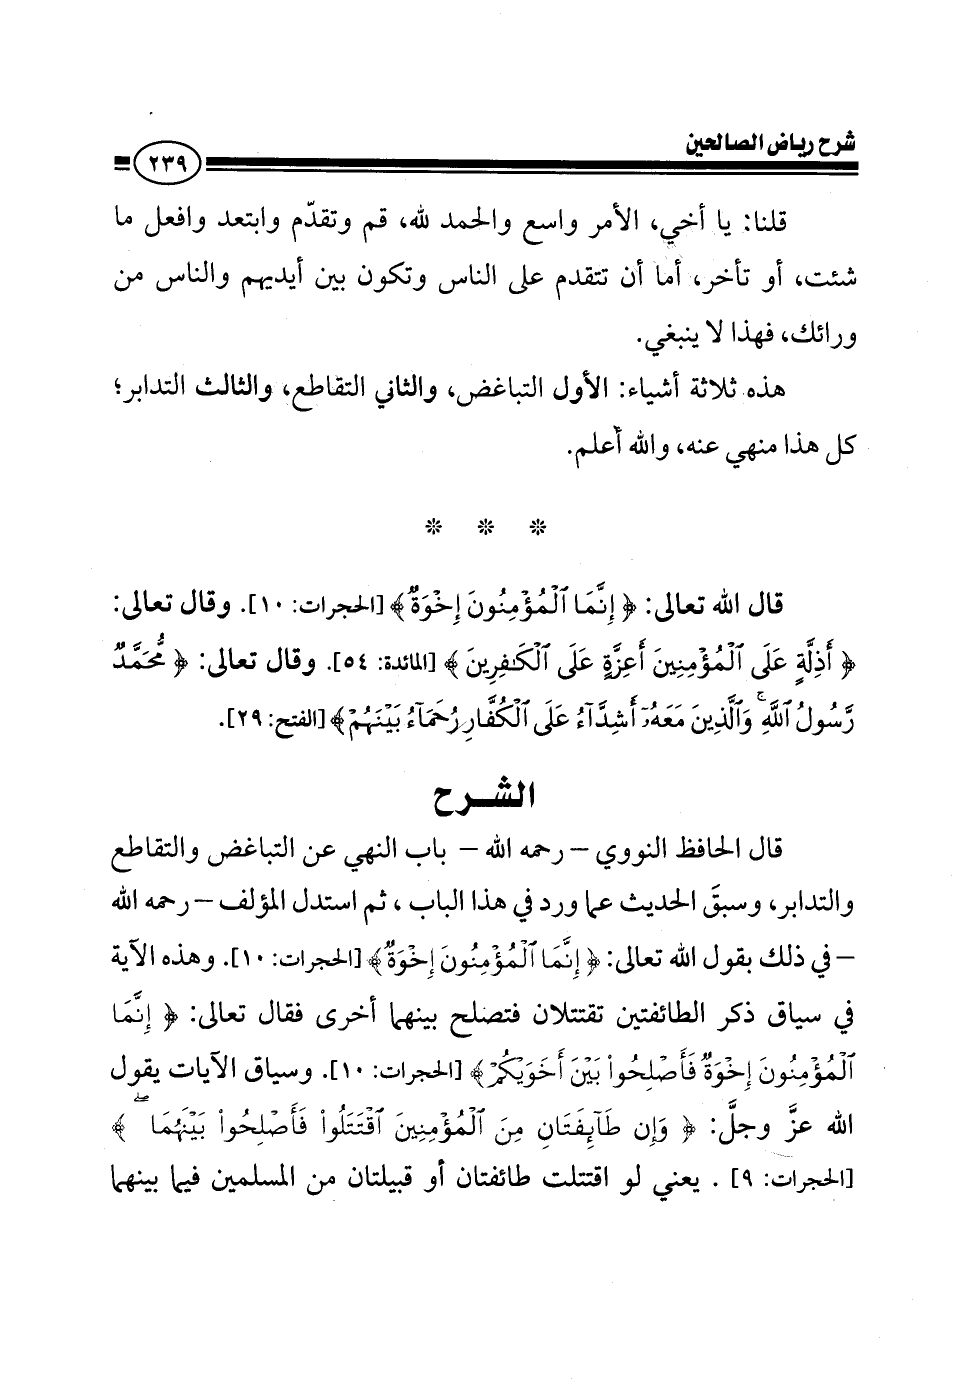 شرح رياض الصالحين
٢٣٩
قلنا: يا أخي، الأمر واسع والحمد لله، قم وتقدّم وابتعد وافعل ما
شئت، أو تأخر، أما أن تتقدم على الناس وتكون بين أيديهم والناس من
ورائك، فهذا لا ينبغي.
هذه ثلاثة أشياء: الأول التباغض، والثاني التقاطع، والثالث التدابر؛
كل هذا منهي عنه، والله أعلم.
* * *
قال الله تعالى: ﴿ إِنَّمَا ٱلْمُؤْمِنُونَ إِخْوَةٌ ﴾ [الحجرات: ١٠]. وقال تعالى:
﴿ أَذِلَّةٍ عَلَى ٱلْمُؤْمِنِينَ أَعِزَّةٍ عَلَى ٱلْكَٰفِرِينَ ﴾ [المائدة: ٥٤]. وقال تعالى: ﴿ مُّحَمَّدٌ
رَّسُولُ ٱللَّهِۚ وَٱلَّذِينَ مَعَهُۥٓ أَشِدَّآءُ عَلَى ٱلْكُفَّارِ رُحَمَآءُ بَيْنَهُمْ ﴾ [الفتح: ٢٩].
الشــرح
قال الحافظ النووي – رحمه الله – باب النهي عن التباغض والتقاطع
والتدابر، وسبقَ الحديث عما ورد في هذا الباب ، ثم استدل المؤلف – رحمه الله
– في ذلك بقول الله تعالى: ﴿ إِنَّمَا ٱلْمُؤْمِنُونَ إِخْوَةٌ ﴾ [الحجرات: ١٠]. وهذه الآية
في سياق ذكر الطائفتين تقتتلان فتصلح بينهما أخرى فقال تعالى: ﴿ إِنَّمَا
ٱلْمُؤْمِنُونَ إِخْوَةٌ فَأَصْلِحُوا۟ بَيْنَ أَخَوَيْكُمْ ﴾ [الحجرات: ١٠]. وسياق الآيات يقول
الله عزَّ وجلَّ: ﴿ وَإِن طَآئِفَتَانِ مِنَ ٱلْمُؤْمِنِينَ ٱقْتَتَلُوا۟ فَأَصْلِحُوا۟ بَيْنَهُمَاۖ ﴾
[الحجرات: ٩] . يعني لو اقتتلت طائفتان أو قبيلتان من المسلمين فيما بينهما